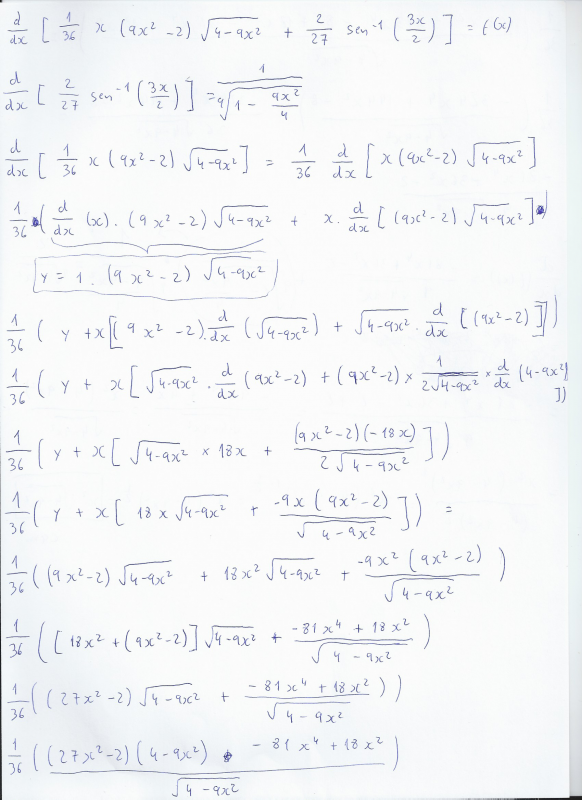 d/dx [ 1/36 x (9x² - 2) √(4-9x²) + 2/27 sen⁻¹ (3x/2) ] = f(x)
d/dx [ 2/27 sen⁻¹ (3x/2) ] = 1/(9√(1 - 9x²/4))
d/dx [ 1/36 x (9x²-2) √(4-9x²) ] = 1/36 d/dx [ x (9x²-2) √(4-9x²) ]
1/36 · ( d/dx (x) · (9x²-2) √(4-9x²) + x · d/dx [ (9x²-2) √(4-9x²) ] )
y = 1 · (9x²-2) √(4-9x²)
1/36 ( y + x [ (9x² - 2) · d/dx ( √(4-9x²) ) + √(4-9x²) · d/dx [ (9x²-2) ] ] )
1/36 ( y + x [ √(4-9x²) · d/dx (9x²-2) + (9x²-2) × 1/(2√(4-9x²)) × d/dx (4-9x²) ] )
1/36 ( y + x [ √(4-9x²) × 18x + (9x²-2)(-18x)/(2√(4-9x²)) ] )
1/36 ( y + x [ 18x √(4-9x²) + -9x (9x²-2)/√(4-9x²) ] ) =
1/36 ( (9x²-2) √(4-9x²) + 18x² √(4-9x²) + -9x² (9x²-2)/√(4-9x²) )
1/36 ( [ 18x² + (9x²-2) ] √(4-9x²) + (-81x⁴ + 18x²)/√(4-9x²) )
1/36 ( (27x²-2) √(4-9x²) + (-81x⁴ + 18x²)/√(4-9x²) ) )
1/36 ( ((27x²-2) (4-9x²) - 81x⁴ + 18x²)/√(4-9x²) )